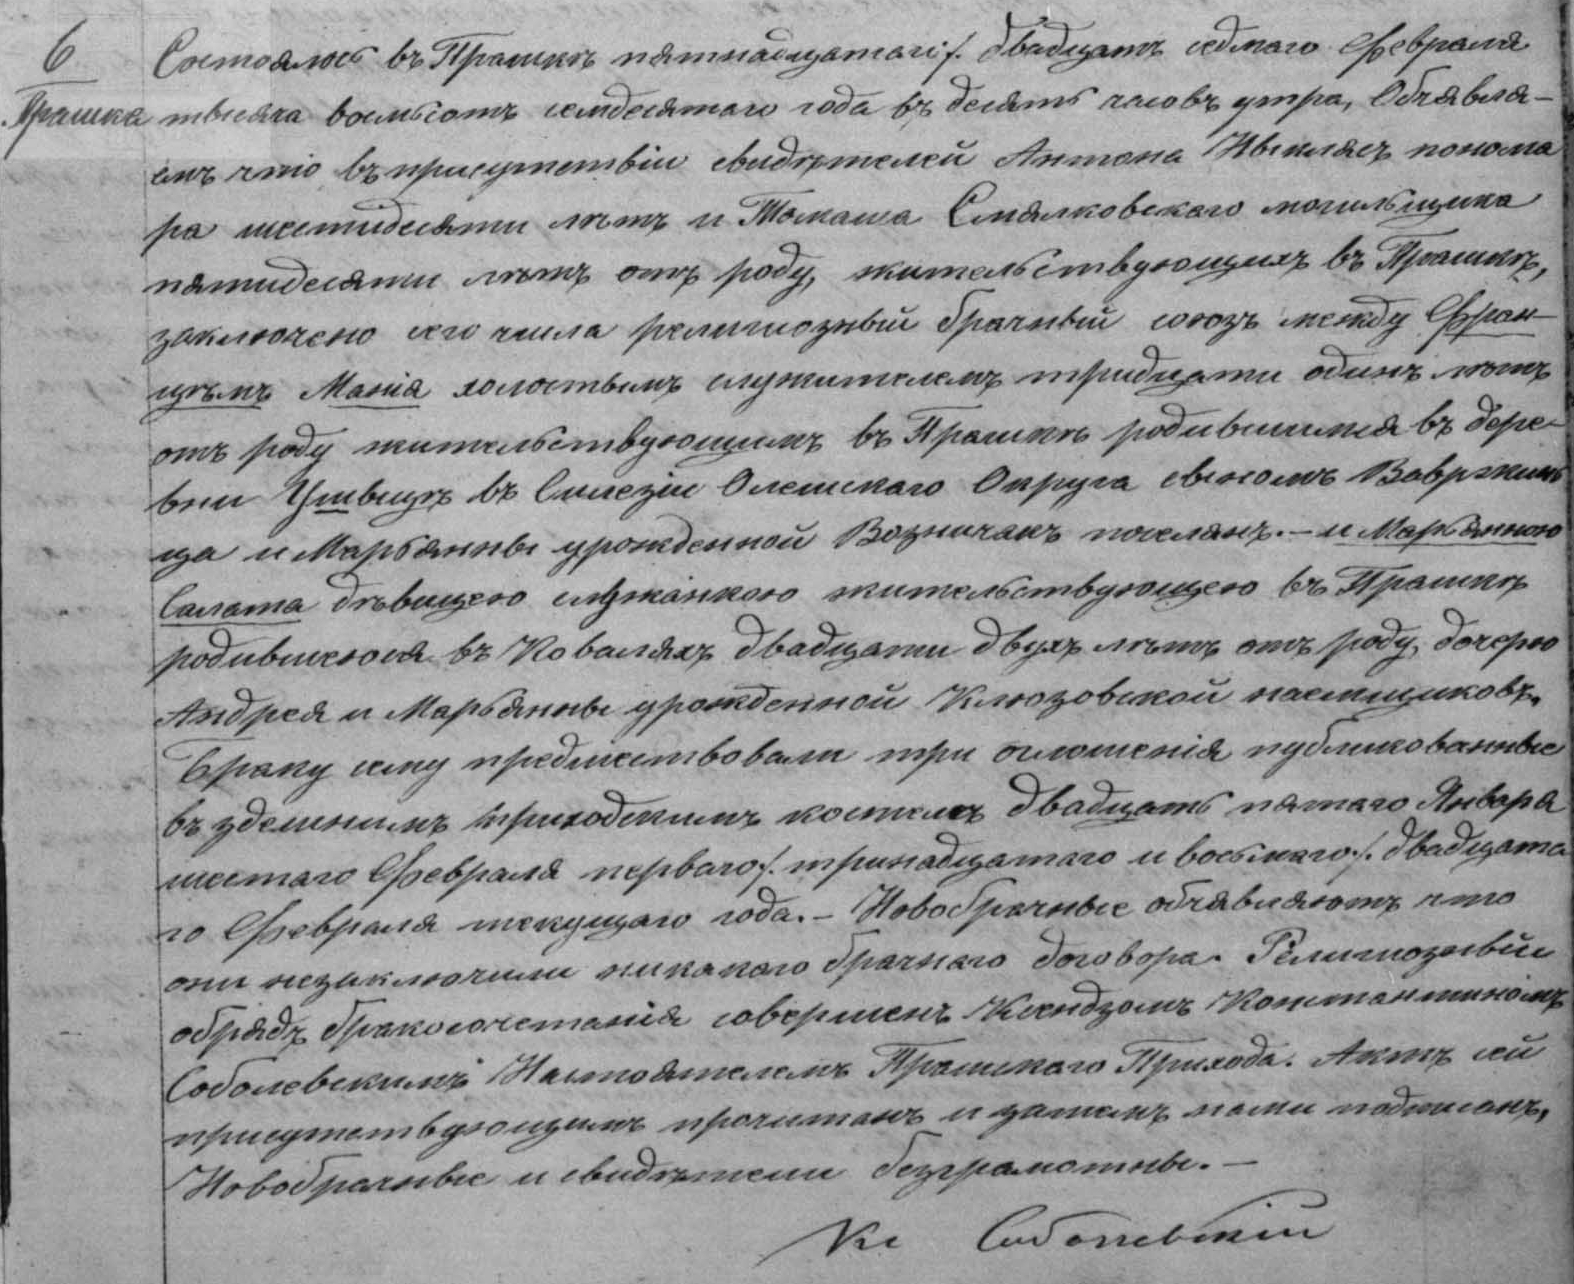 6
Прашка
Состоялось въ Прашкѣ пятнадцатаго/. двадцать седмаго Февраля
тысяча восемьсотъ семдесятаго года въ десять часовъ утра, Объявля-
емъ что въ присутствіи свидѣтелей Антона понома
ра шестидесяти лѣтъ и Томаша Смялковскаго могильщика
пятидесяти лѣтъ отъ роду, жительствующихъ въ Прашкѣ,
заключено сего числа религіозный брачный союзъ между Фран-
цѣмъ Манія холостымъ служителемъ тридцати одинъ лѣтъ
отъ роду жительствующимъ въ Прашкѣ родившимся въ дере-
вни въ Силезіи Олескаго Округа сыномъ Вавржин
ца и Марьянны урожденной Возничакъ поселянъ. – и Марьянною
Салата дѣвицею служанкою жительствующею въ Прашкѣ
родившеюся въ Коваляхъ двадцати двухъ лѣтъ отъ роду, дочерью
Андрея и Марьянны урожденной Клюзовской наемщиковъ.
Браку сему предшествовали три оглошенія публикованные
въ здешнимъ приходскимъ костелѣ двадцать пятаго Января
шестаго Февраля перваго/. тринадцатаго и восьмаго/. двадцата
го Февраля текущаго года. – Новобрачные объявляютъ что
они незаключили никакаго брачнаго договора. Религіозный
обрядъ бракосочетанія совершенъ Ксендзомъ Константиномъ
Соболевскимъ Настоятелемъ Прашскаго Прихода. Актъ сей
присутствующимъ прочитанъ и затемъ нами подписанъ,
Новобрачные и свидѣтели безграмотны. –
Кс Соболевскій